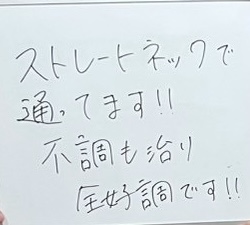 ストレートネックで
通ってます!!
不調も治り
全好調です!!